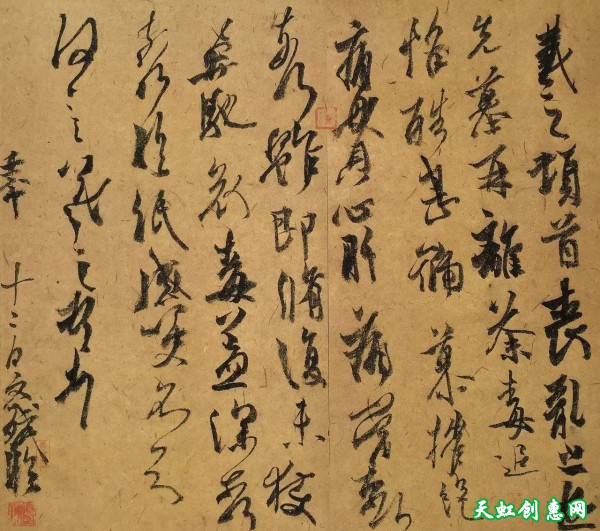 羲之頓首喪亂之極
先墓再離荼毒追
惟酷甚號慕摧絕
痛貫心肝痛當奈何
奈何雖即脩復未獲
奔馳哀毒益深奈何
奈何臨紙感哽不知
何言羲之頓首頓首
十二月文臨
天虹创惠网